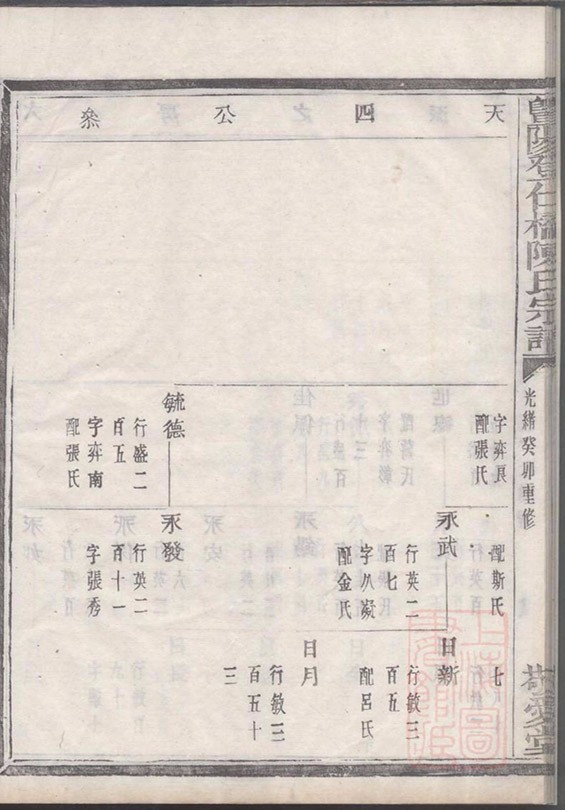 暨陽登仕橋陳氏宗譜
光緒癸卯重修
敬愛堂
天四公叅
字弈良
配張氏
毓德
行盛二
百五
字弈南
配張氏
配斯氏
永武
行英二
百七
字从凝
配金氏
永發
行英二
百十一
字張秀
七
日新
行敏三
百五
配呂氏
日月
行敏三
百五十
三